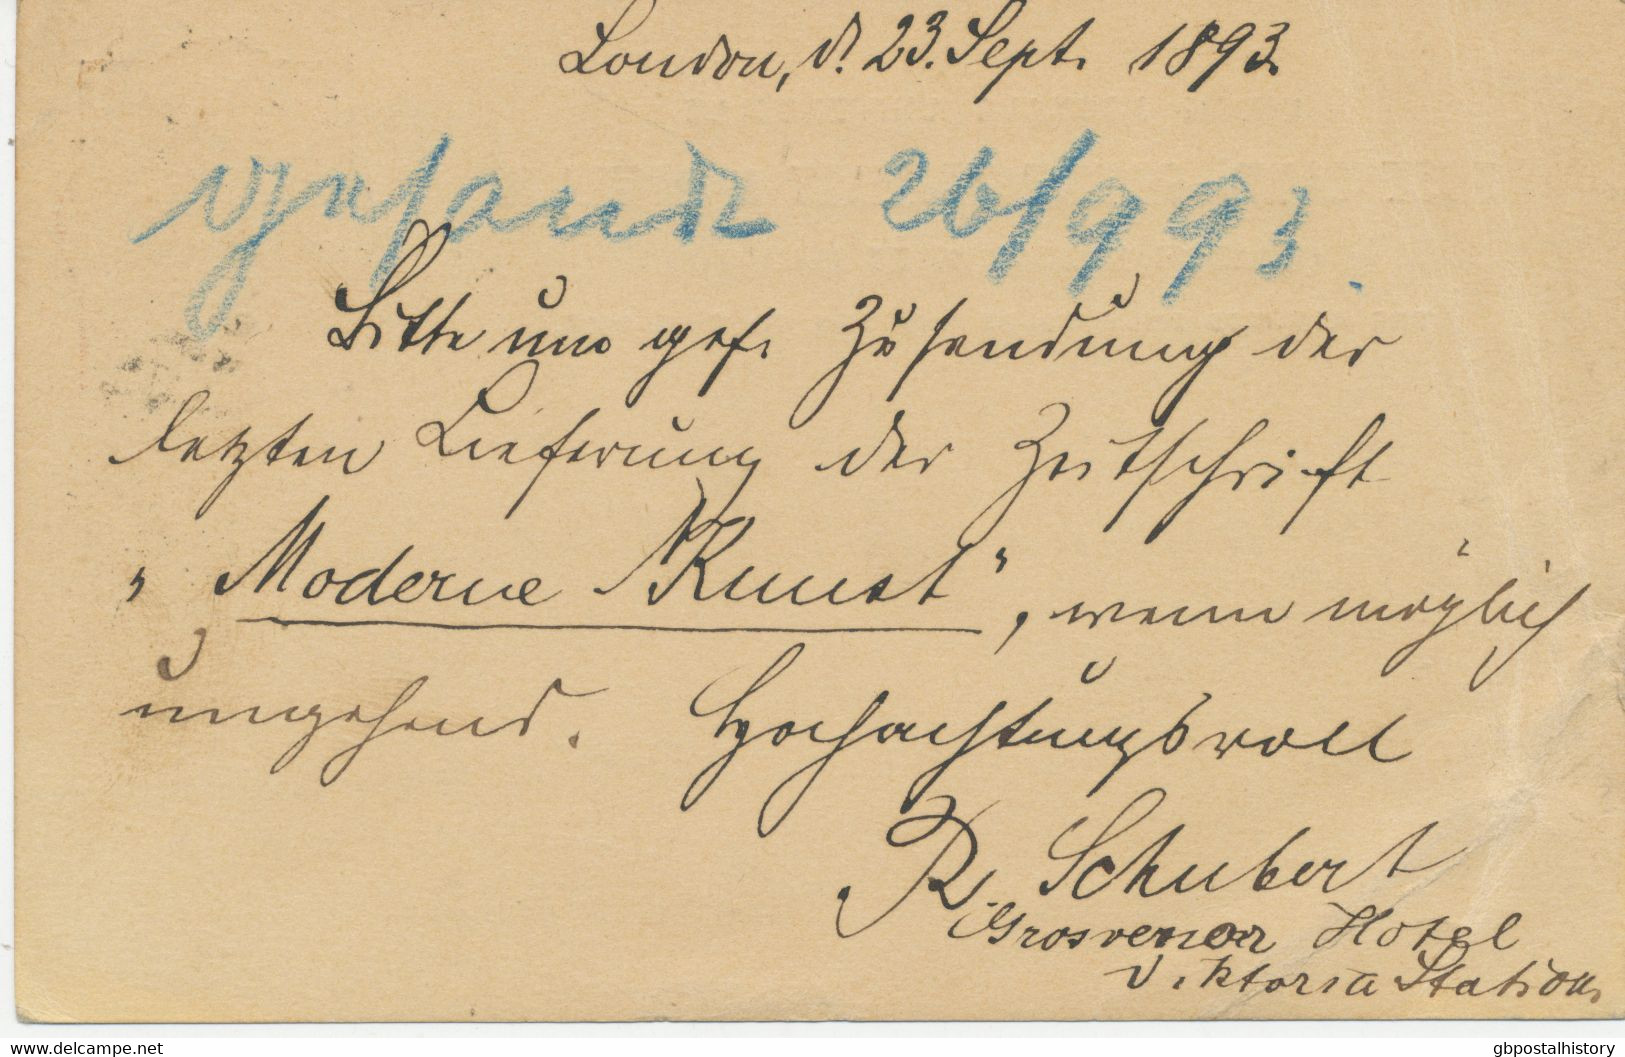 London, d. 23. Sept. 1893.
gesandt 26/9 93.
Bitte um gef. Zusendung der
letzten Lieferung der Zeitschrift
„Moderne Kunst“, wenn möglich
umgehend. Hochachtungsvoll
R. Schubert
Grosvenor Hotel
Viktoria Station.
www.delcampe.net
gbpostalhistory